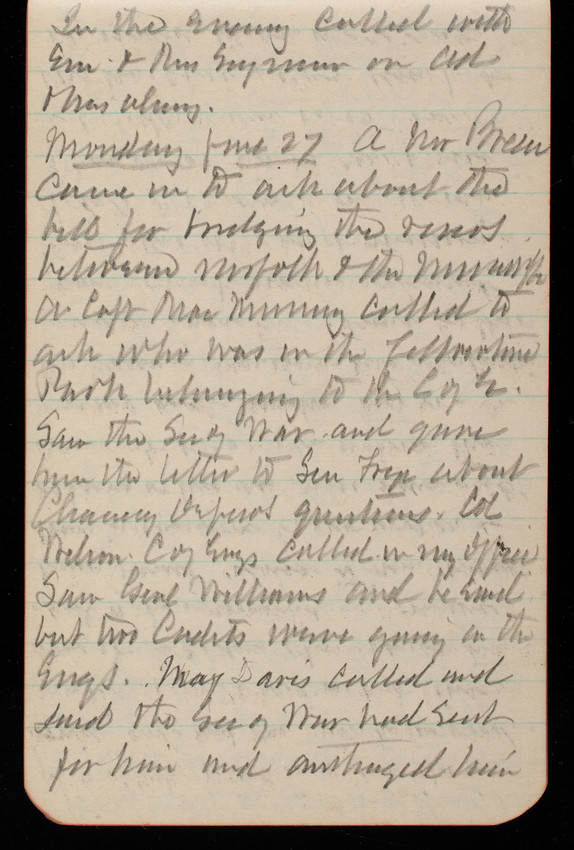 In the evening called with
Em. & Mrs Seymour on Col
& Mrs
Monday June 27 A Mr Breen
came in to ask about the
bill for bridging the rivers
between Norfolk & the
A Capt Mac Murray called to
ask who was in the Yellowstone
Park belonging to the C of E.
Saw the Sec of War and gave
him the letter to Gen about
questions. Col
Wilson C of Engs called in my office
Saw Genl Williams and he said
but two Cadets were going in the
Engs. May Davis called and
said the Sec of War had sent
for him and him